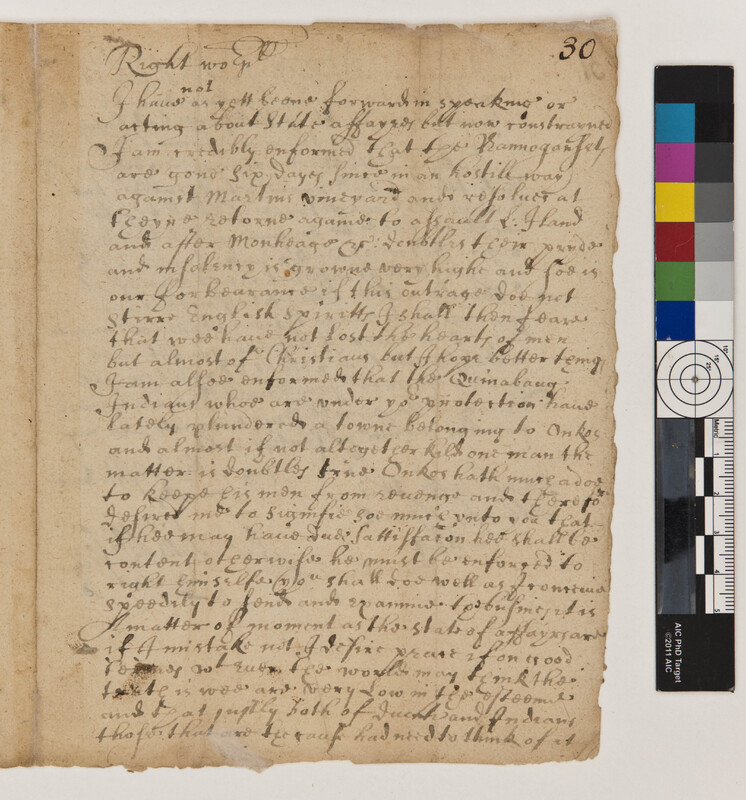 30
Right wopll
not
I haue as yett beene forward in speaking or
acting about State affayres but now constrayned
I am credibly enformed that the Nannogansets
are gone six dayes since in an hostile way
against Martins vineyard and resolues at
theyre retorne againe to assault L: Iland
and after Monheage &c: doubtles their pryde
and insolency is growne very highe and soe is
our forbearance if this outrage doe not
stirre English spiritts I shall then feare
that wee haue not lost the hearts of men
but almost of Christians but I hope better things
I am alsoe enformed that the Quinabaug
Indians whoe are vnder yor protection haue
lately plundered a towne belonging to Onkos
and almost if not altogether kild one man the
matter is doubtles true Onkos hath much adoe
to keepe his men from reuenge and therefo
desires me to signifie soe much vnto you that
if hee may haue due sattisfacon hee shall be
content otherwise he must be enforced to
right himselfe you shall doe well as I conceiue
speedily to send and examine the busines it is
A matter of moment as the state of affayrs are
if I mistake not I desire peace if on good
termes wt euer the world may think the
truth is wee are very low in the esteeme
and that justly both of Duch and Indians
those that are the cause had need to think of it
Metric
1
2
3
4
5
AIC PhD Target
©2011 AIC